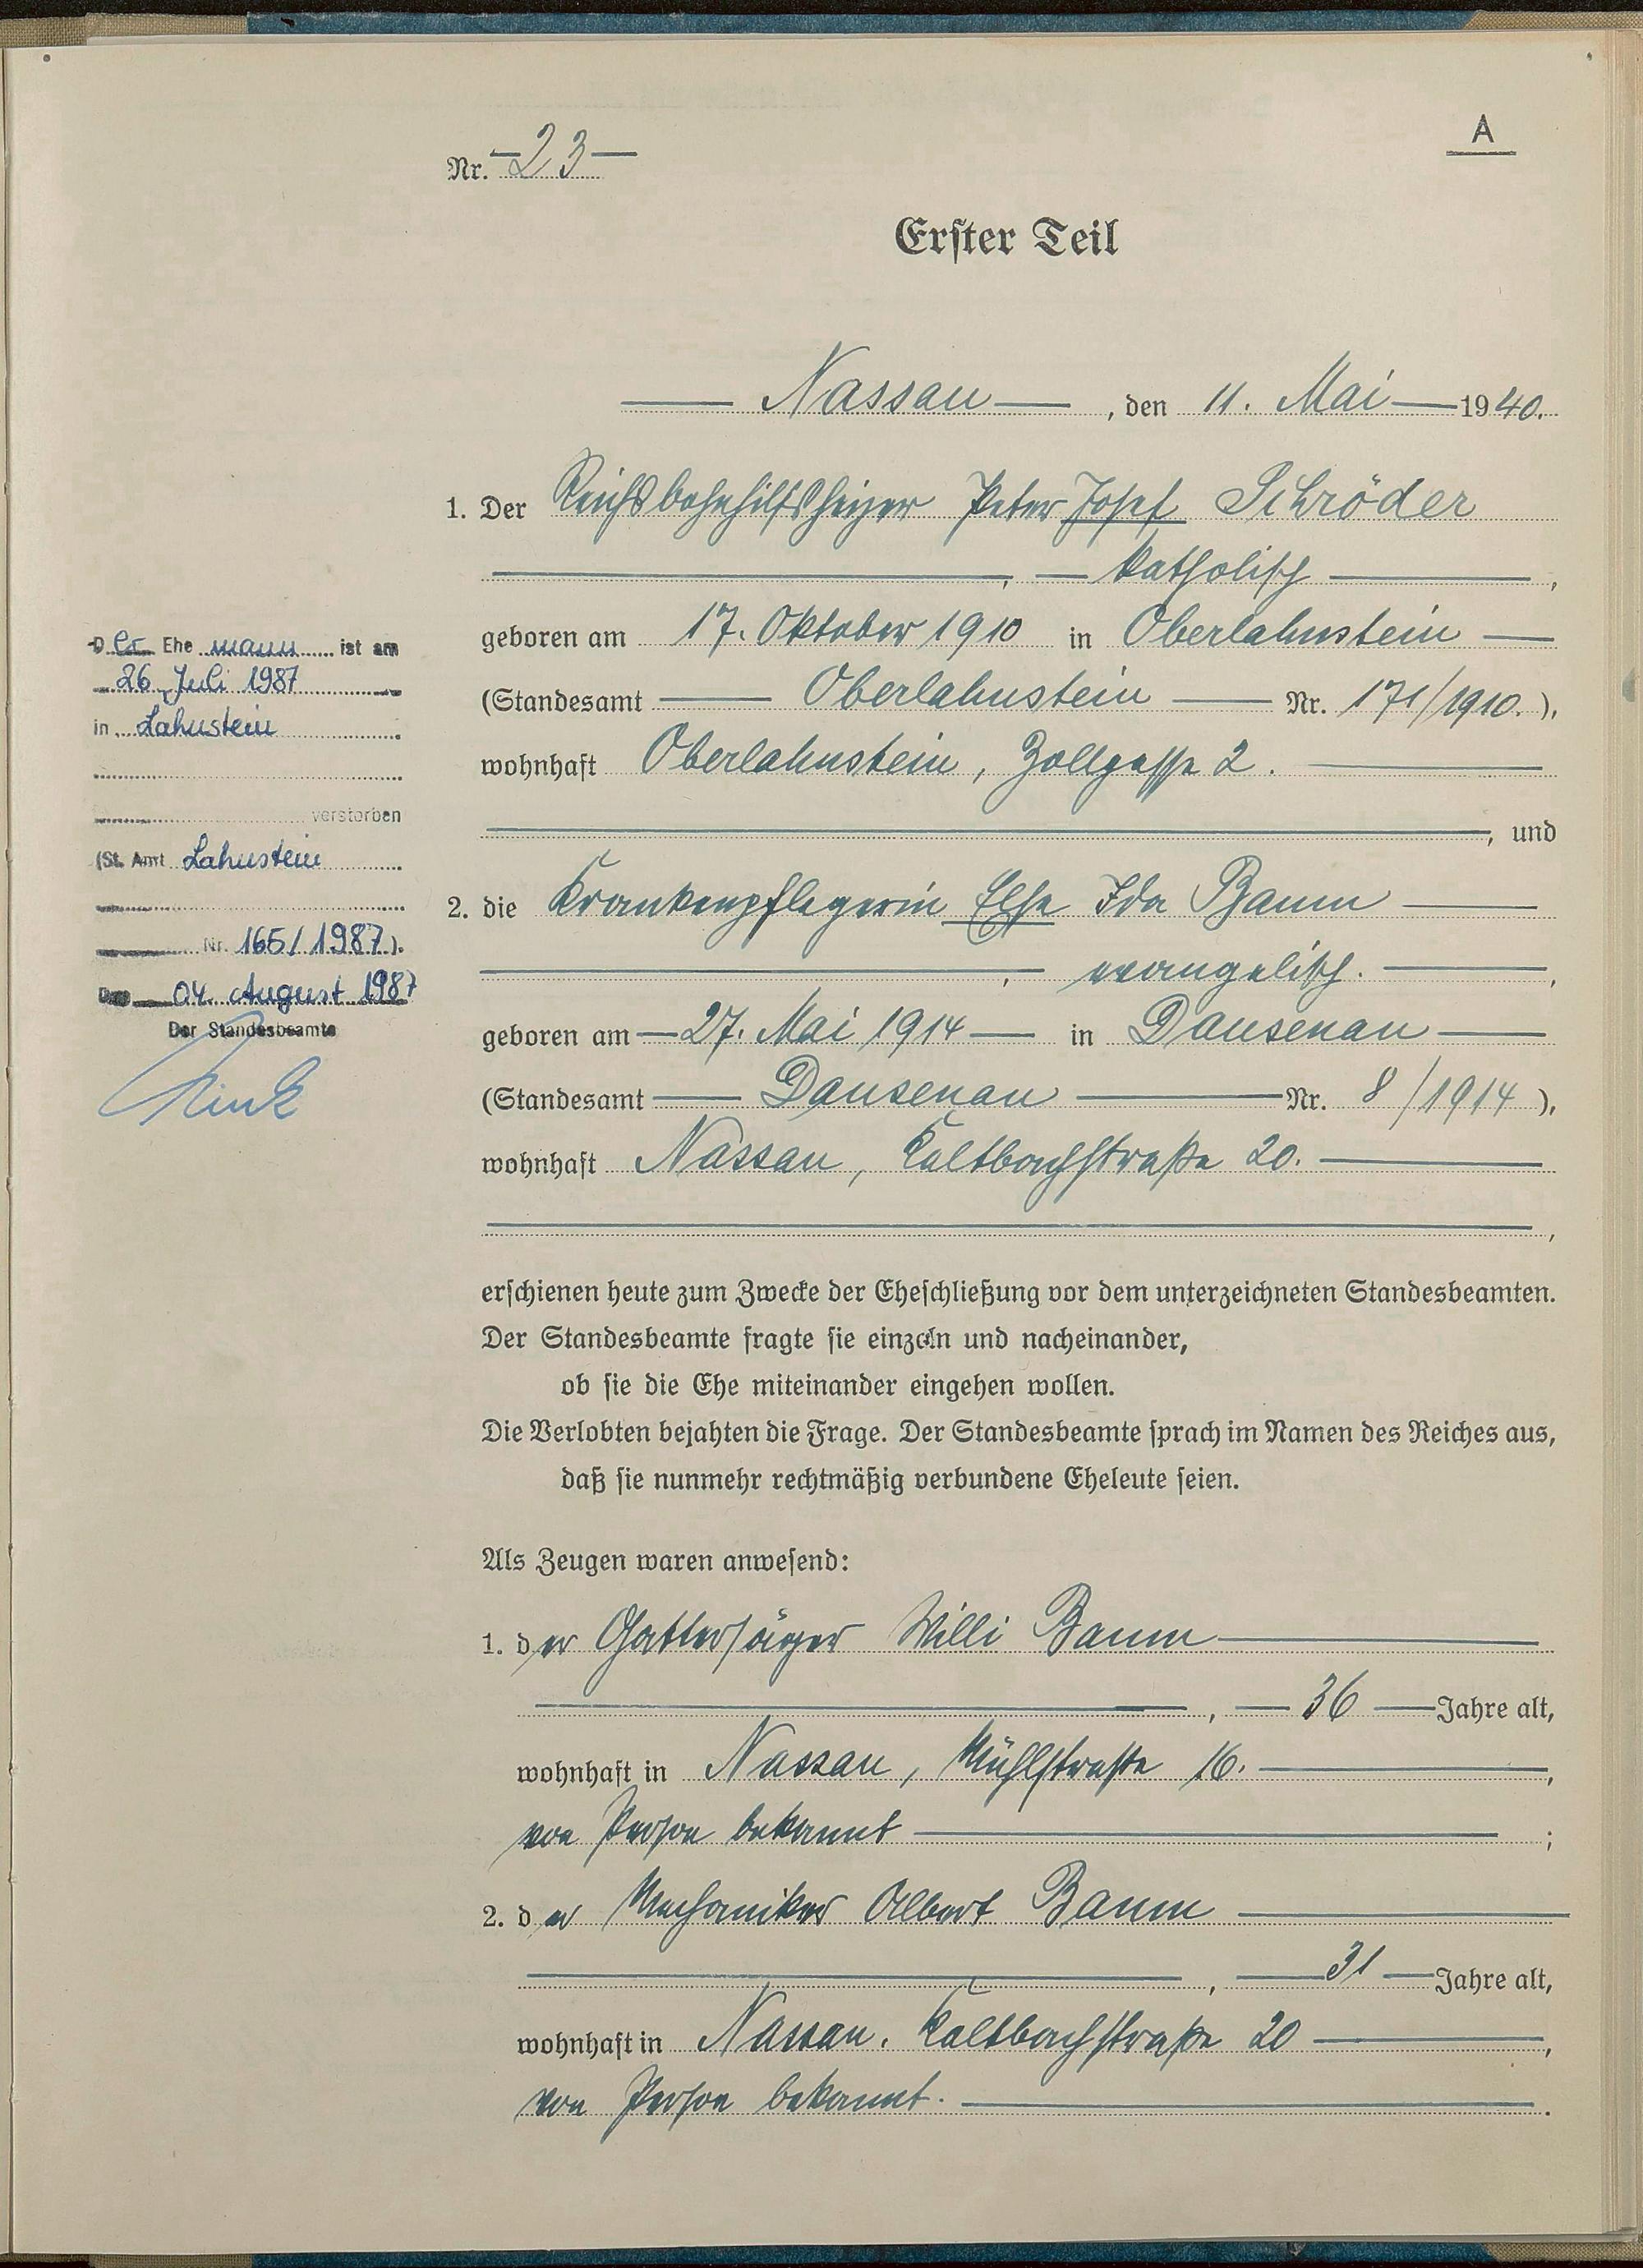 A
Nr. 23
Erster Teil
Nassau, den 11. Mai 1940.
1. Der Reichsbahnhilfsheizer Peter Josef Schröder
, katholisch,
geboren am 17. Oktober 1910 in Oberlahnstein
(Standesamt Oberlahnstein Nr. 171/1910.),
wohnhaft Oberlahnstein, Zollgasse 2.
, und
2. die Krankenpflegerin Else Ida Baum
, evangelisch.,
geboren am 27. Mai 1914 in Dausenau
(Standesamt Dausenau Nr. 8/1914),
wohnhaft Nassau, Kaltbachstraße 20.
,
erschienen heute zum Zwecke der Eheschließung vor dem unterzeichneten Standesbeamten.
Der Standesbeamte fragte sie einzeln und nacheinander,
ob sie die Ehe miteinander eingehen wollen.
Die Verlobten bejahten die Frage. Der Standesbeamte sprach im Namen des Reiches aus,
daß sie nunmehr rechtmäßig verbundene Eheleute seien.
Als Zeugen waren anwesend:
1. der Willi Baum
, 36 Jahre alt,
wohnhaft in Nassau, Mühlstraße 16.,
von Person bekannt;
2. der Mechaniker Albert Baum
, 31 Jahre alt,
wohnhaft in Nassau, Kaltbachstraße 20,
von Person bekannt.
Der Ehemann ist am
26. Juli 1987
in Lahnstein
verstorben
(St. Amt Lahnstein
Nr. 165/1987).
Den 04. August 1987
Der Standesbeamte